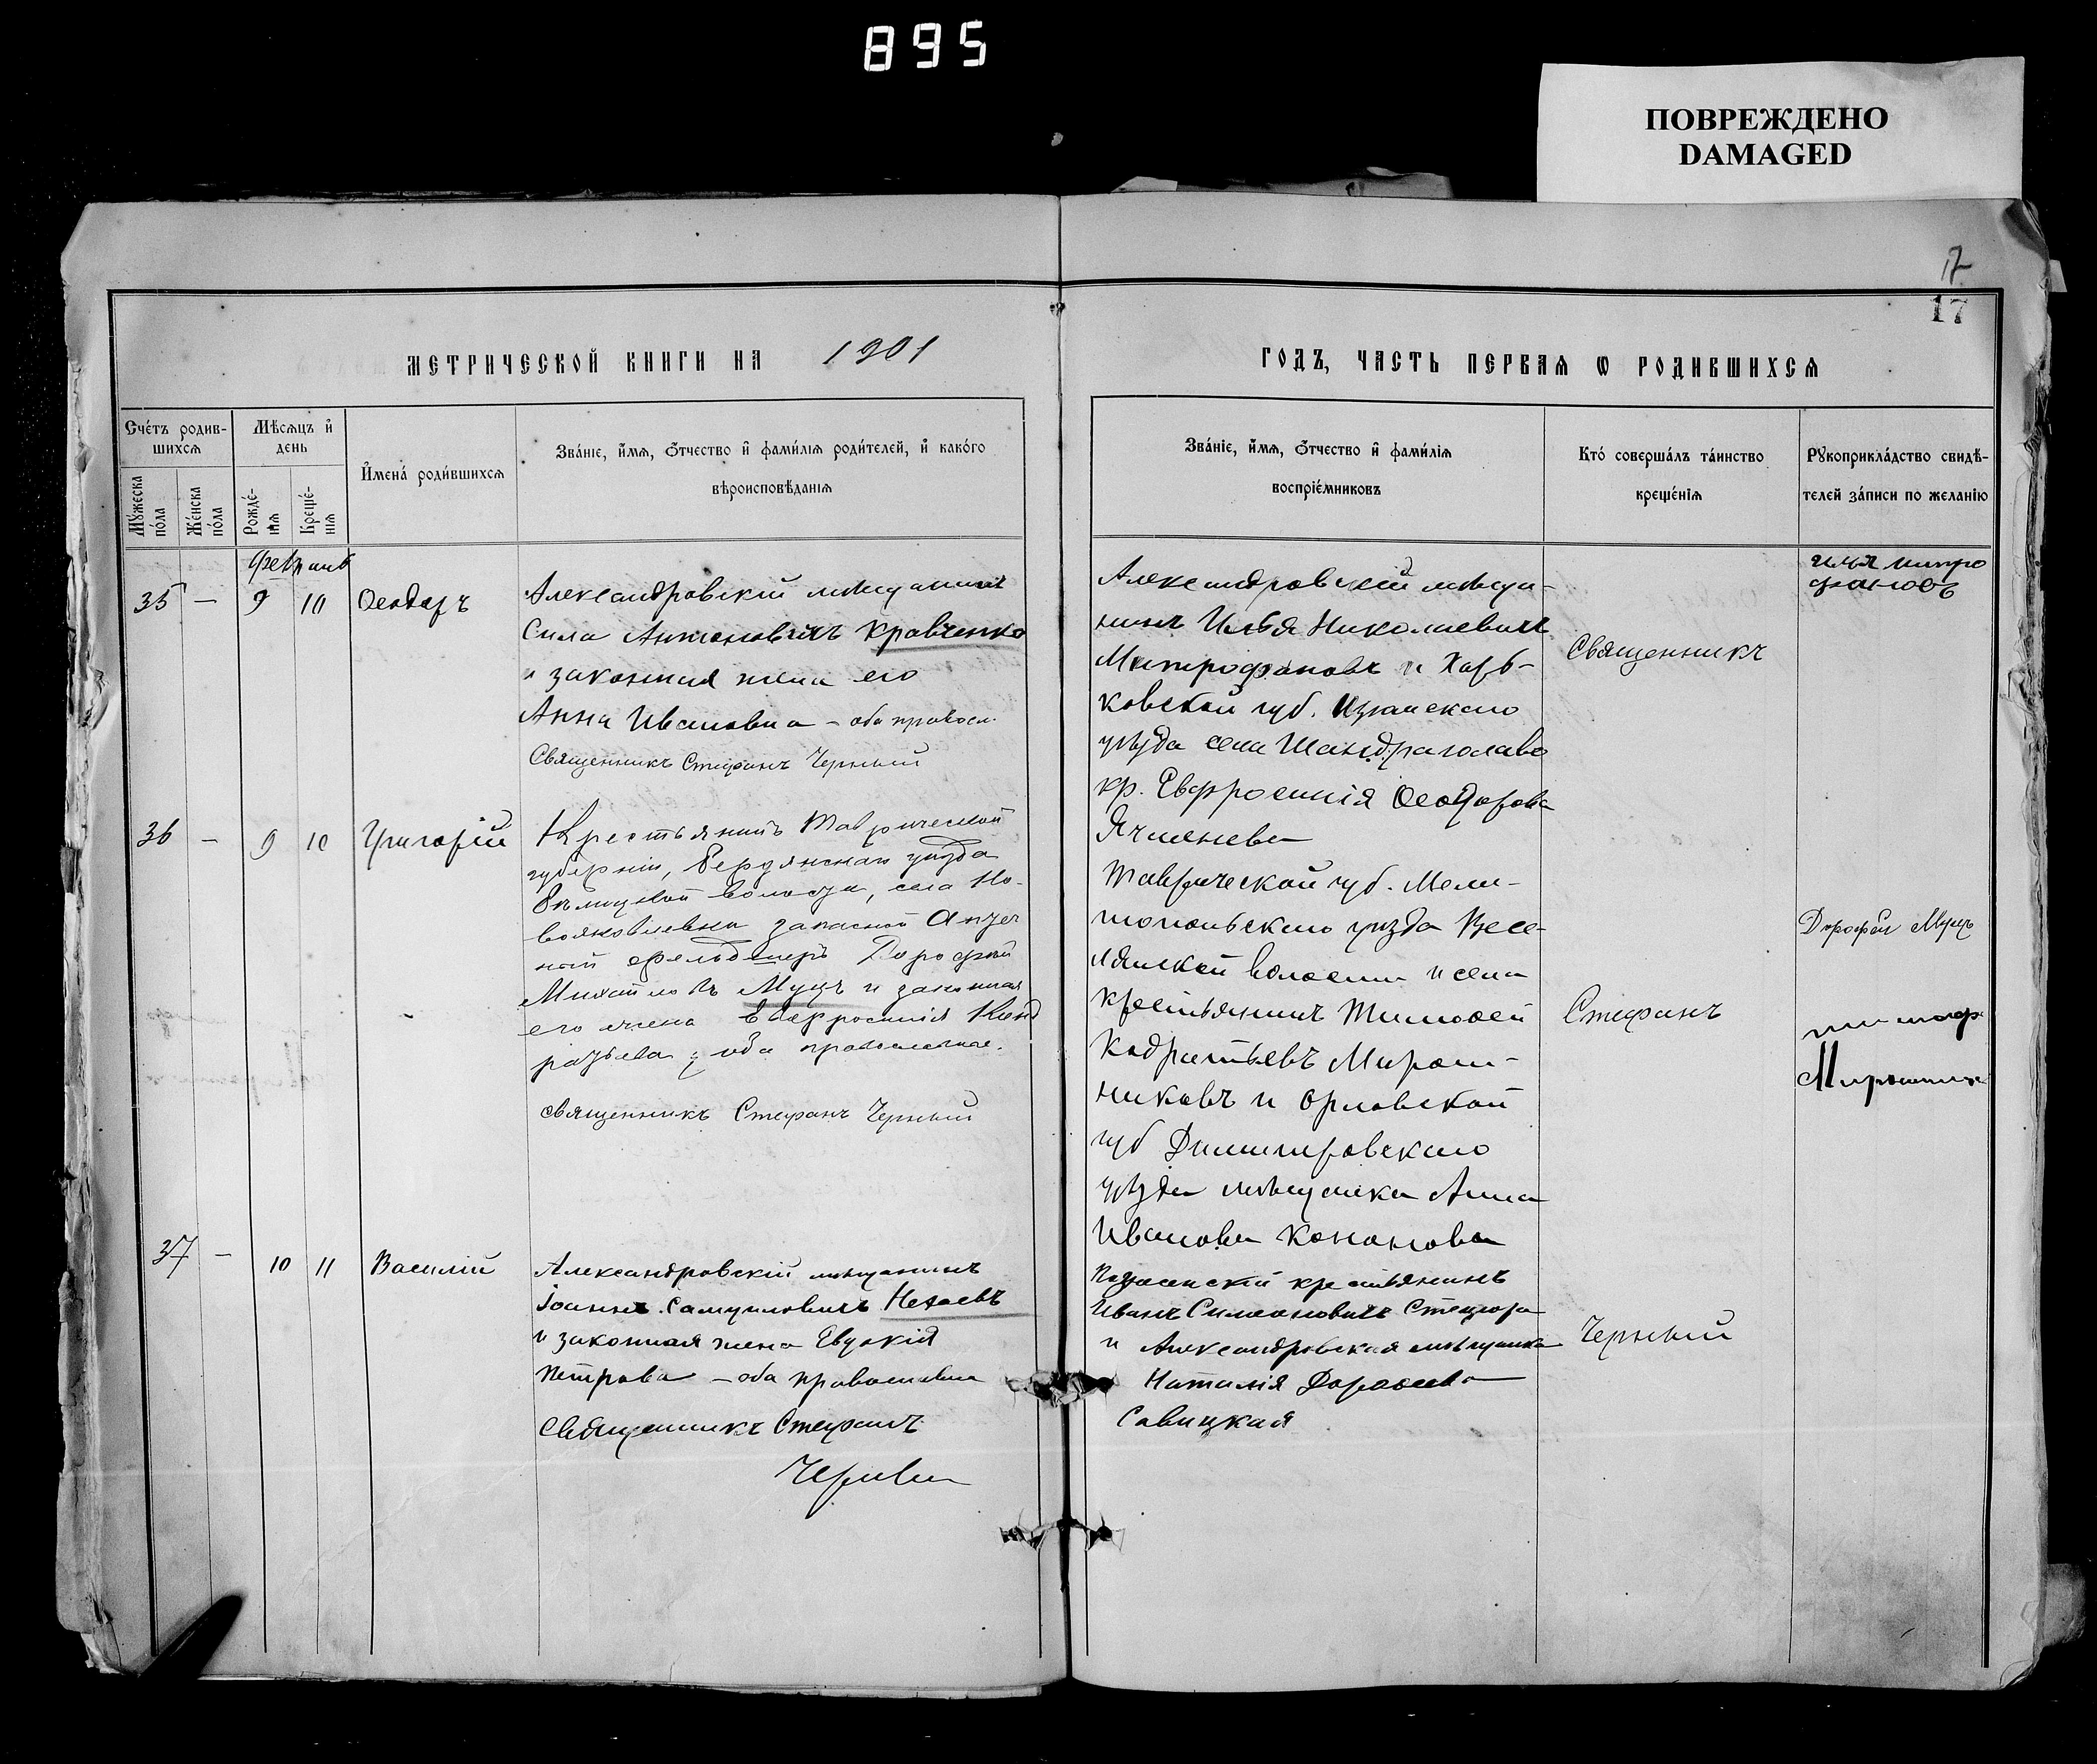 895
ПОВРЕЖДЕНО
DAMAGED
17
17
МЕТРИЧЕСКОЙ КНИГИ НА 1901
ГОДЪ, ЧАСТЬ ПЕРВАЯ Ѡ РОДИВШИХСЯ
Счетъ родив-
шихся
Мужеска
пола
Женска
пола
Мѣсяцъ и
день
Рожде-
нія
Креще-
нія
Имена родившихся
Званіе, имя, отчество и фамилія родителей, и какого
вѣроисповѣданія
Званіе, имя, отчество и фамилія
воспріемниковъ
Кто совершалъ таинство
крещенія
Рукоприкладство свидѣ-
телей записи по желанію
35 — 9 10 Ѳеодоръ
Александровскій мѣщанинъ
Сила Антоновичъ Кравченко
и законная жена его
Анна Ивановна – оба правосл.
Священникъ Стефанъ Черный
Александровскій мѣща-
нинъ Илья Николаевичъ
Митрофановъ и Харь-
ковской губ. Изюмскаго
уѣзда села Шандраголово
кр. Евфросинія Ѳеодорова
Ячменева
Священникъ
Илья Митро
фановъ
36 — 9 10 Григорій
Крестьянинъ Таврической
губерніи, Бердянскаго уѣзда
волости, села Но-
вояковлевки запасной
фельдшеръ Дорофей
Михайловъ Муцъ и законная
его жена Евфросинія Конд
ратьева, оба православные.
священникъ Стефанъ Черный
Таврической губ. Мели-
топольскаго уѣзда Весе-
лянской волости и села
крестьянинъ Тимофей
Кодратьевъ Мирош-
никовъ и Орловской
губ Димитровскаго
уѣзда мѣщанка Анна
Иванова Кононова
Стефанъ
Дорофей Муцъ
37 — 10 11 Василій
Александровскій мѣщанинъ
Іоаннъ Самуиловичъ Нехаевъ
и законная жена Евдокія
Петрова – оба православные
Священникъ Стефанъ
Черный
крестьянинъ
Иванъ Симоновичъ Стецюра
и Александровская мѣщанка
Наталія Дороѳеева
Савицкая
Черный